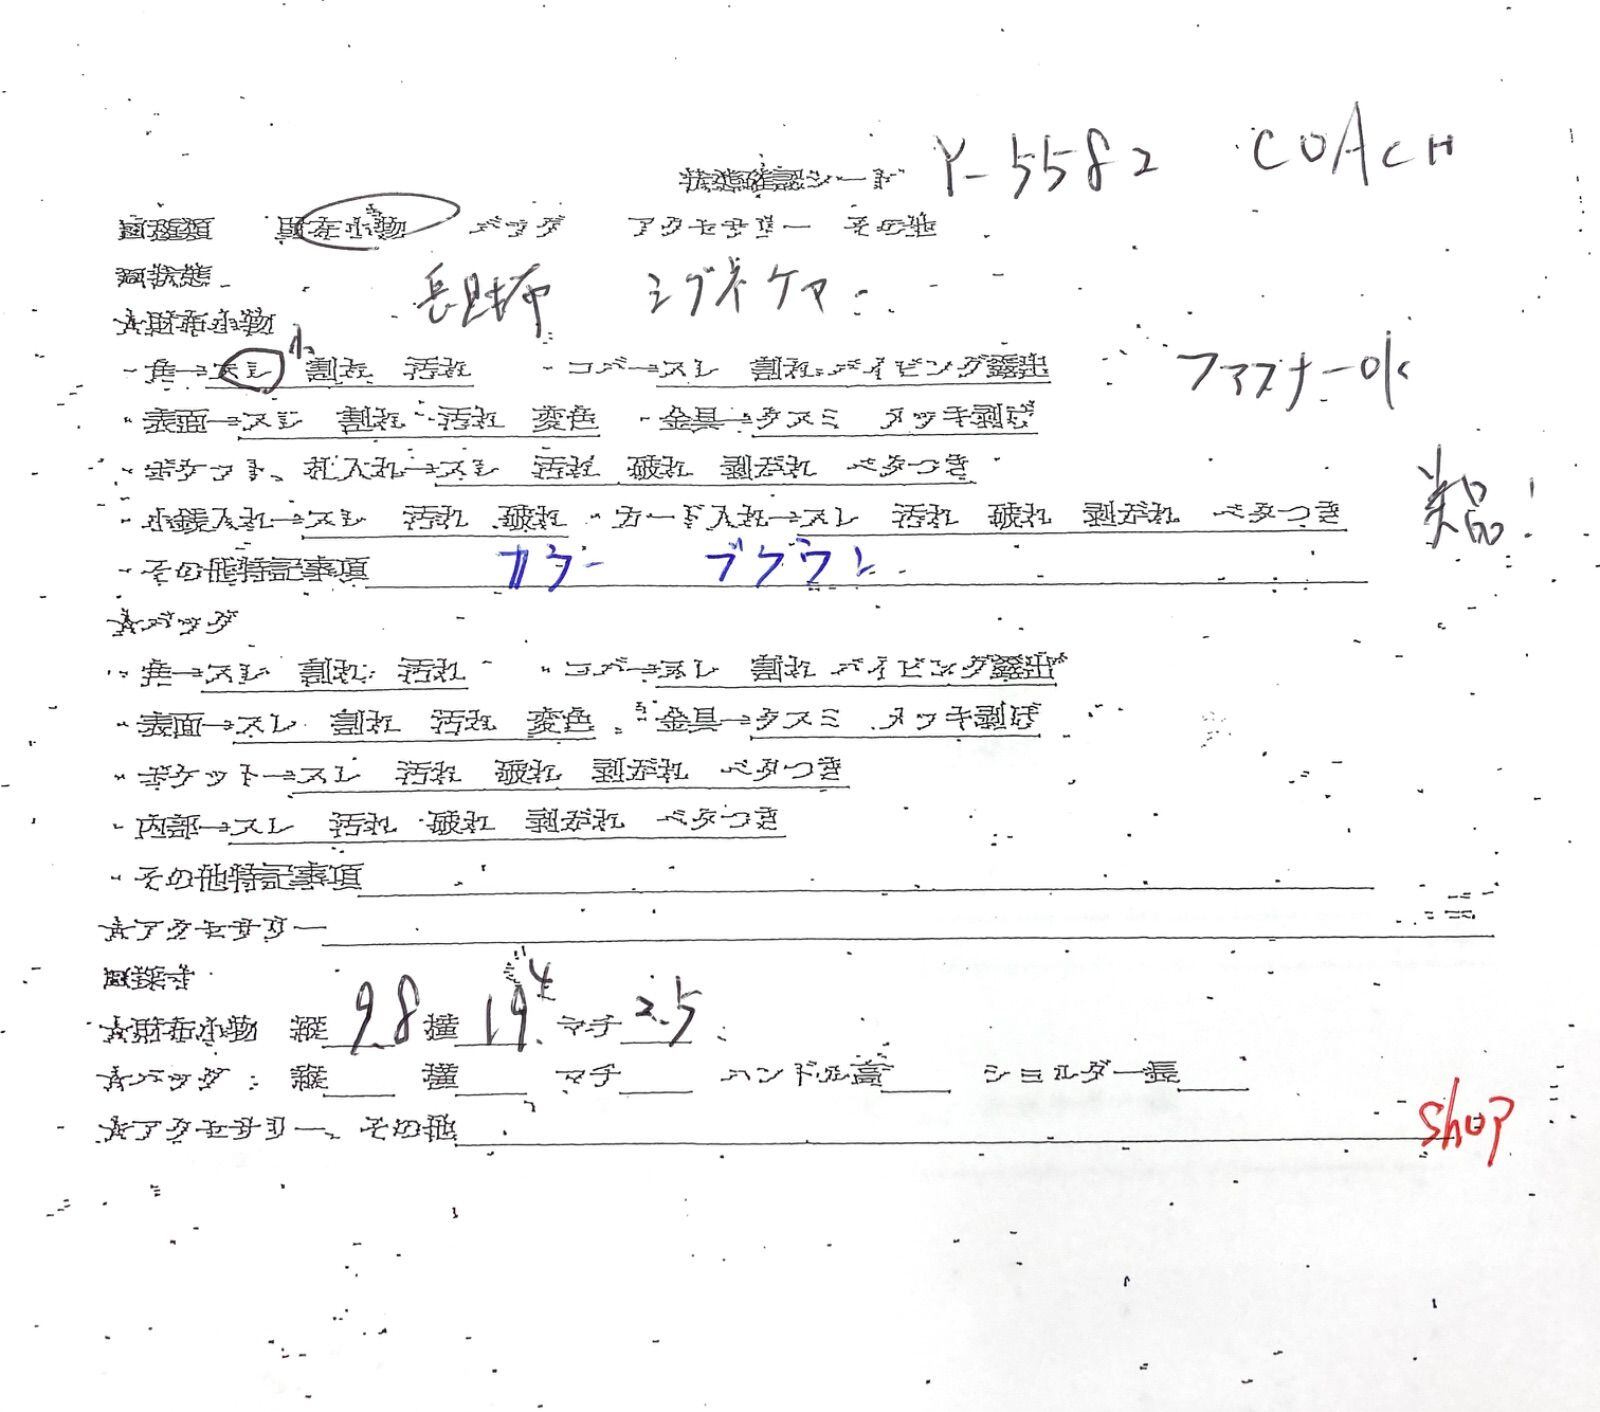 状態確認シート Y-5582 COACH
種類 財布小物 バッグ アクセサリー その他
状態
長財布 シグネケア
☆財布小物
・角→スレ 小 割れ 汚れ ・コバ→スレ 割れ パイピング露出 ファスナーOK
・表面→スレ 割れ 汚れ 変色 ・金具→クスミ メッキ剥げ
・ポケット、札入れ→スレ 汚れ 破れ 剥がれ ベタつき
・小銭入れ→スレ 汚れ 破れ ・カード入れ→スレ 汚れ 破れ 剥がれ ベタつき
美品!
・その他特記事項 カラー ブラウン
☆バッグ
・角→スレ 割れ 汚れ ・コバ→スレ 割れ パイピング露出
・表面→スレ 割れ 汚れ 変色 ・金具→クスミ メッキ剥げ
・ポケット→スレ 汚れ 破れ 剥がれ ベタつき
・内部→スレ 汚れ 破れ 剥がれ ベタつき
・その他特記事項
☆アクセサリー
採寸
☆財布小物 縦 9.8 横 19.4 マチ 2.5
☆バッグ 縦 横 マチ ハンドル高 ショルダー長
☆アクセサリー、その他
shop